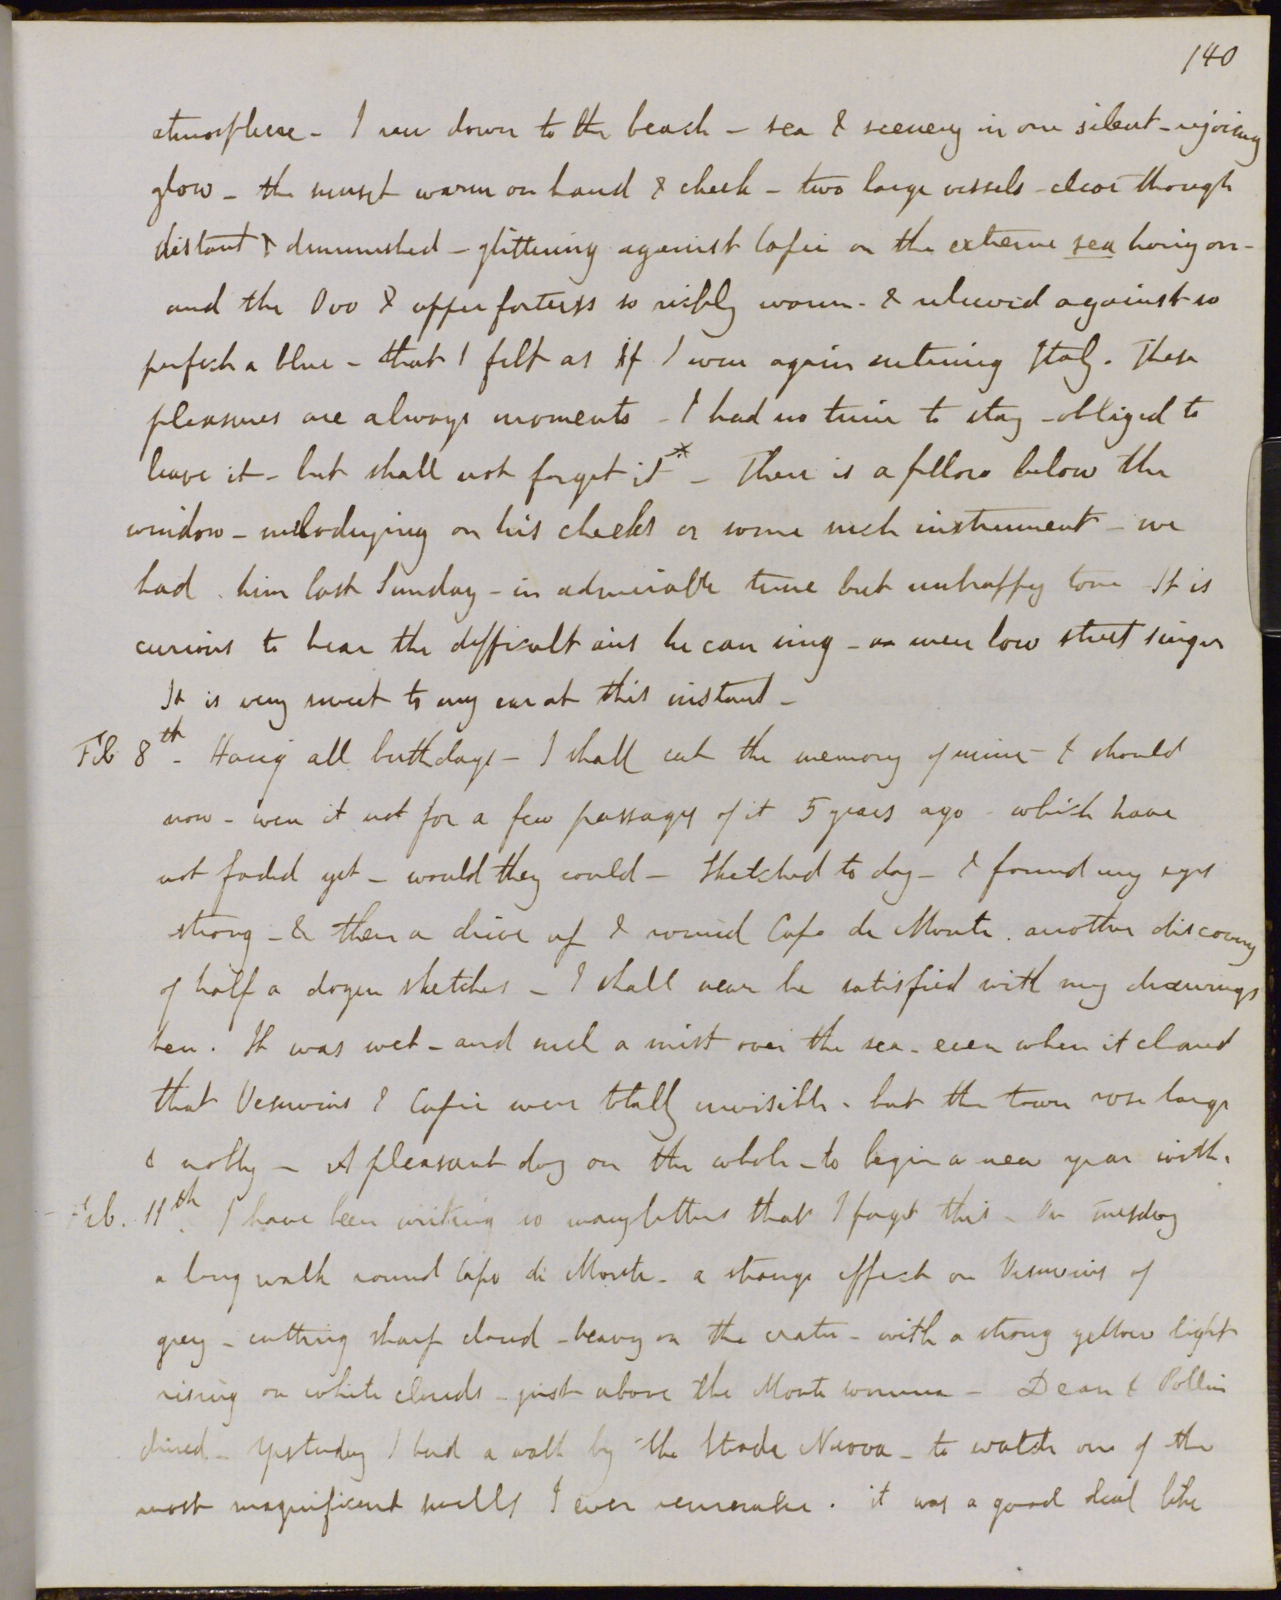 140
atmosphere - I ran down to the beach - sea & scenery in one silent - rejoicing
glow - the sunset warm on hand & cheek - two large vessels - clear though
distant & diminished - glittering against Capri on the extreme sea horizon -
and the Ovo & upper fortress so richly warm - & relieved against so
perfect a blue - that I felt as if I were again entering Italy. These
pleasures are always moments - I had no time to stay - obliged to
leave it - but shall not forget it * - There is a fellow below the
window - melodizing on his cheeks or some such instrument - we
had him last Sunday - in admirable tune but unhappy tone - It is
curious to hear the difficult airs he can sing - a mere low street singer
It is very sweet to my ear at this instant -
Feb 8th - Hang all birthdays - I shall cut the memory of mine - & should
now - were it not for a few passages of it 5 years ago - which have
not faded yet - would they could - Sketched to day - & found my eyes
strong - & then a drive up & round Capo de Monte. another discovery
of half a dozen sketches - I shall never be satisfied with my drawings
here. It was wet - and such a mist over the sea - even when it cleared
that Vesuvius & Capri were totally invisible - but the town rose large
& nobly - A pleasant day on the whole - to begin a new year with.
Feb. 11th. I have been writing so many letters that I forget this - On Tuesday
a long walk round Capo di Monte - a strange effect on Vesuvius of
grey - cutting sharp cloud - heavy on the crater - with a strong yellow light
rising on white clouds - just above the Monte Somma - Dean & Pollen
dined - Yesterday I had a walk by the Strada Nuova - to watch one of the
most magnificent swells I ever remember. it was a good deal like